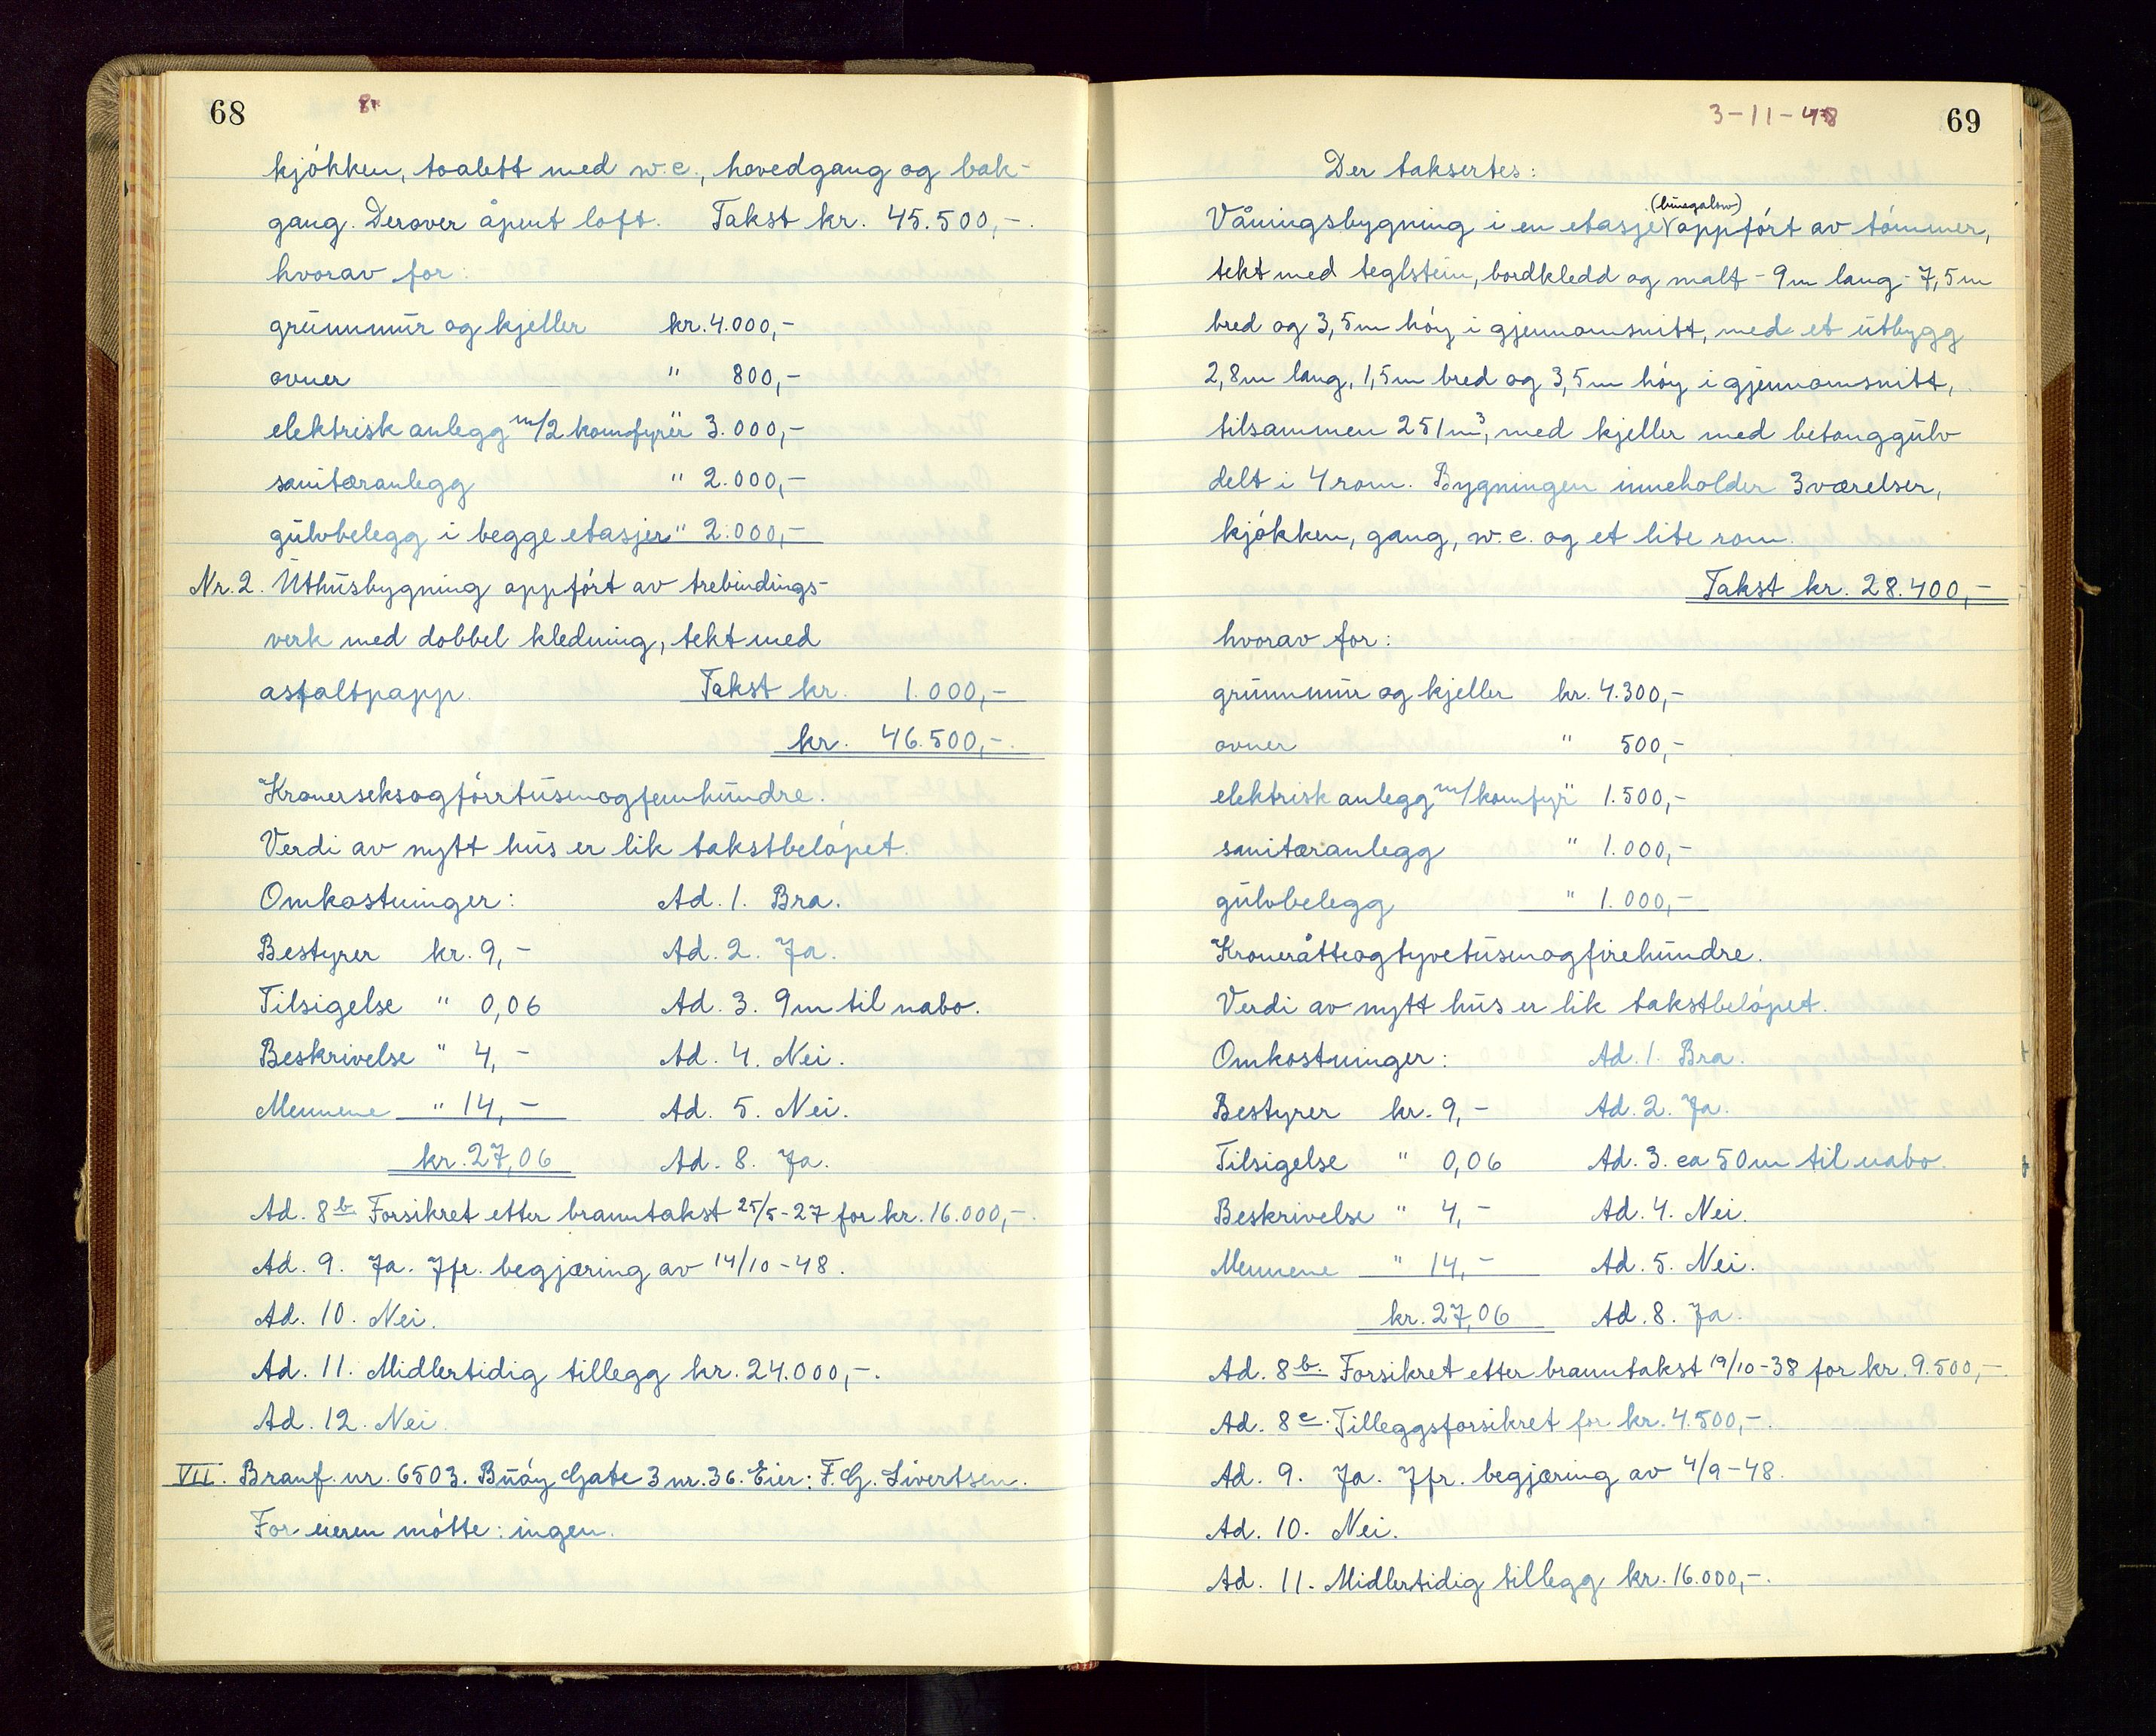 68
kjökken, toalett med w.c., hovedgang og bak-
gang. Derover åpent loft. Takst kr. 45.500,-.
hvorav for:
grunnmur og kjeller kr. 4.000,-
ovner " 800,-
elektrisk anlegg m/2 komfyrer " 3.000,-
sanitæranlegg " 2.000,-
gulvbelegg i begge etasjer " 2.000,-
Nr. 2. Uthusbygning oppfört av trebindings-
verk med dobbel kledning, tekt med
asfaltpapp. Takst kr. 1.000,-
kr. 46.500,-.
Kronerseksogförrtusenogfemhundre.
Verdi av nytt hus er lik takstbelöpet.
Omkostninger: Ad. 1. Bra.
Bestyrer kr. 9,- Ad. 2. Ja.
Tilsigelse " 0,06 Ad. 3. 9m til nabo.
Beskrivelse " 4,- Ad. 4. Nei.
Mennene " 14,- Ad. 5. Nei.
kr. 27,06 Ad. 8. Ja.
Ad. 8b Forsikret etter branntakst 25/5-27 for kr. 16.000,-.
Ad. 9. Ja. Jfr. begjæring av 14/10-48.
Ad. 10. Nei.
Ad. 11. Midlertidig tillegg kr. 24.000,-.
Ad. 12. Nei.
VII. Branf. nr. 6503. Buöy Gate 3 nr. 36. Eier: F. G. Sivertsen.
For eieren mötte: ingen.
3-11-48
69
Der taksertes:
(bungalow)
Våningsbygning i en etasje V oppfört av tömmer,
tekt med teglstein, bordkledd og malt - 9m lang - 7,5m
bred og 3,5m höy i gjennomsnitt, med et utbygg
2,8m lang, 1,5m bred og 3,5m höy i gjennomsnitt,
tilsammen 251m³, med kjeller med betonggulv
delt i 4 rom. Bygningen inneholder 3 værelser,
kjökken, gang, w.c. og et lite rom.
Takst kr. 28.400,-
hvorav for:
grunnmur og kjeller kr. 4.300,-
ovner " 500,-
elektrisk anlegg m/komfyr " 1.500,-
sanitæranlegg " 1.000,-
gulvbelegg " 1.000,-
Kroneråtteogtyvetusenogfirehundre.
Verdi av nytt hus er lik takstbelöpet.
Omkostninger: Ad. 1. Bra.
Bestyrer kr. 9,- Ad. 2. Ja.
Tilsigelse " 0,06 Ad. 3. ca 50m til nabo.
Beskrivelse " 4,- Ad. 4. Nei.
Mennene " 14,- Ad. 5. Nei.
kr. 27,06 Ad. 8. Ja.
Ad. 8b. Forsikret etter branntakst 19/10-38 for kr. 9.500,-.
Ad. 8c. Tilleggsforsikret for kr. 4.500,-.
Ad. 9. Ja. Jfr. begjæring av 4/9-48.
Ad. 10. Nei.
Ad. 11. Midlertidig tillegg kr. 16.000,-.